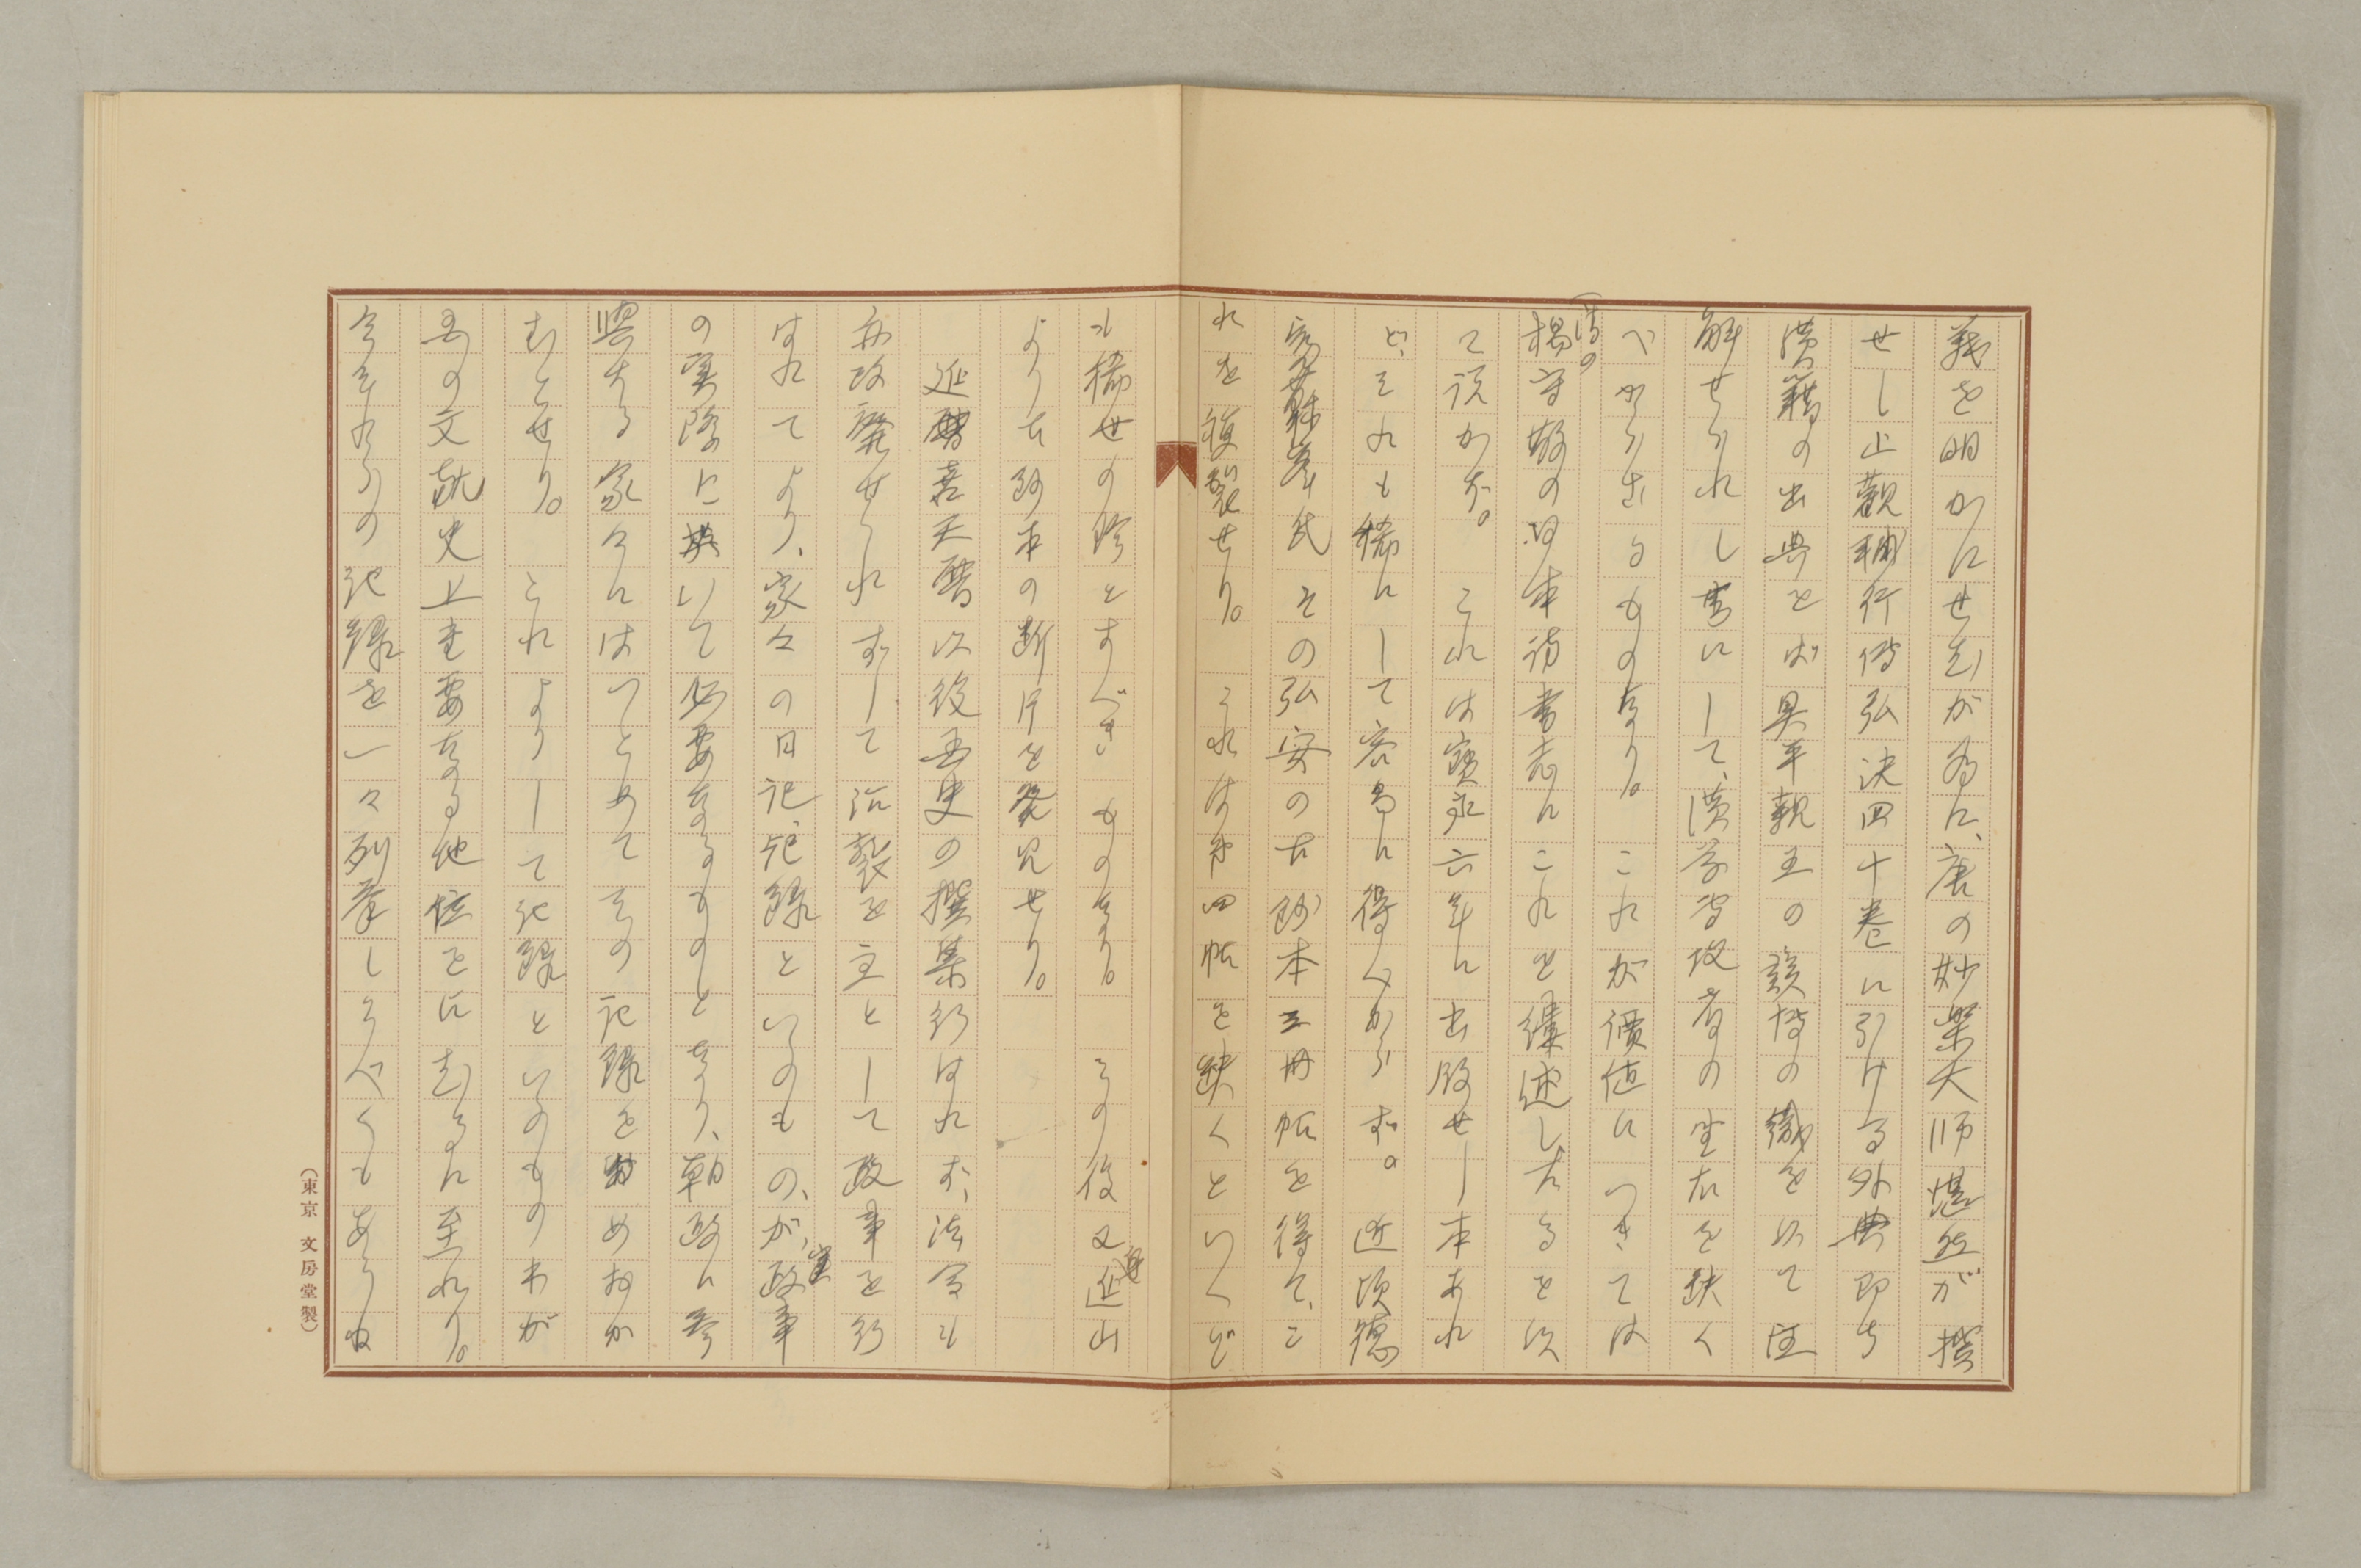 義を明かにせむが為に、唐の妙楽大師湛然が撰
せし止観輔行伝弘決四十巻に引ける外典即ち
漢籍の出典をば具平親王の該博の識を以て注
解せられし書にして、漢学専攻者の坐右を缺く
べからざるものなり。これが價値につきては
(清の
楊守敬の日本訪書志にこれを縷述したるを以
て説かず。これは寳永六年に出版せし本あれ
ど、それも稀にして容易に得べからず。近頃德
富蘇峯氏その弘安の古鈔本三冊帖を得て、こ
れを複製せり。それは第四帖を缺くといへど
も稀世の珍とすべきものなり。その後又延山
より古鈔本の断片を発見せり。
延暦天暦以後国史の撰集行はれず、法令も
亦改廃せられずして治裂を主として政事を行
はれてより、家々の日記、記録といふもの、が、政事
の実際に於いて必要なるものとなり、朝政に参
與する家々にはつとめてその記録をめおか
むとせり。これよりして記録といふものわが
国の文献史上重要なる地位をにむるに至れり。
今それらの記録を一々列挙しうべくもあらね
(東京 文房堂製)